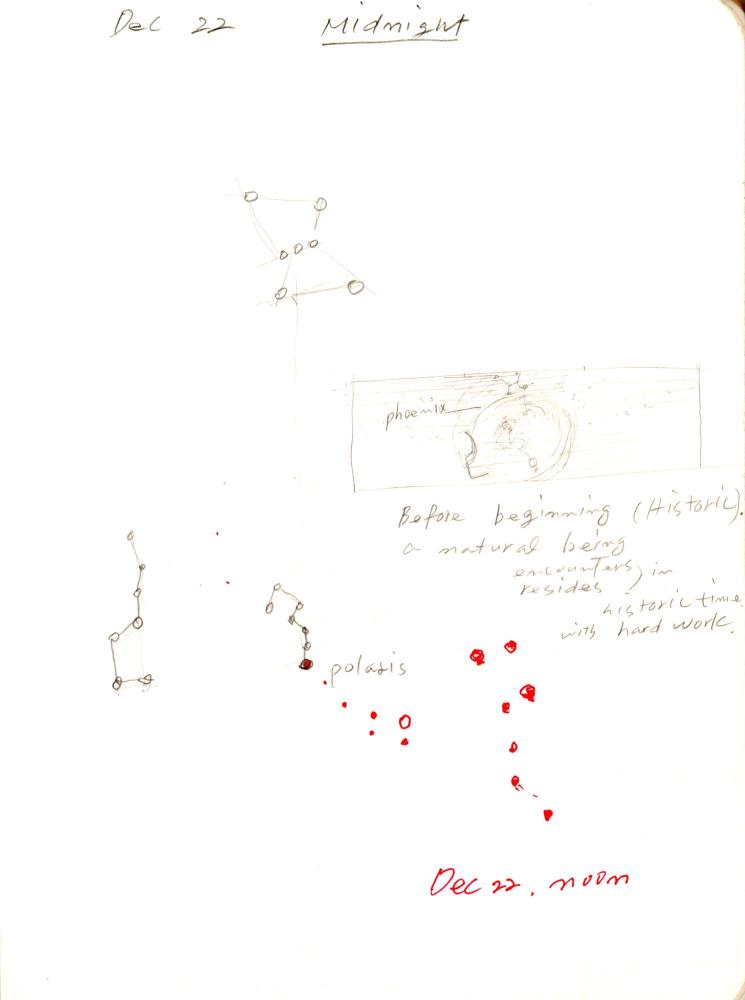 Dec 22 Midnight
phoenix
Before beginning (Historic).
a natural being
encounters, in
resides
historic time
with hard work.
polaris
Dec 22. noon